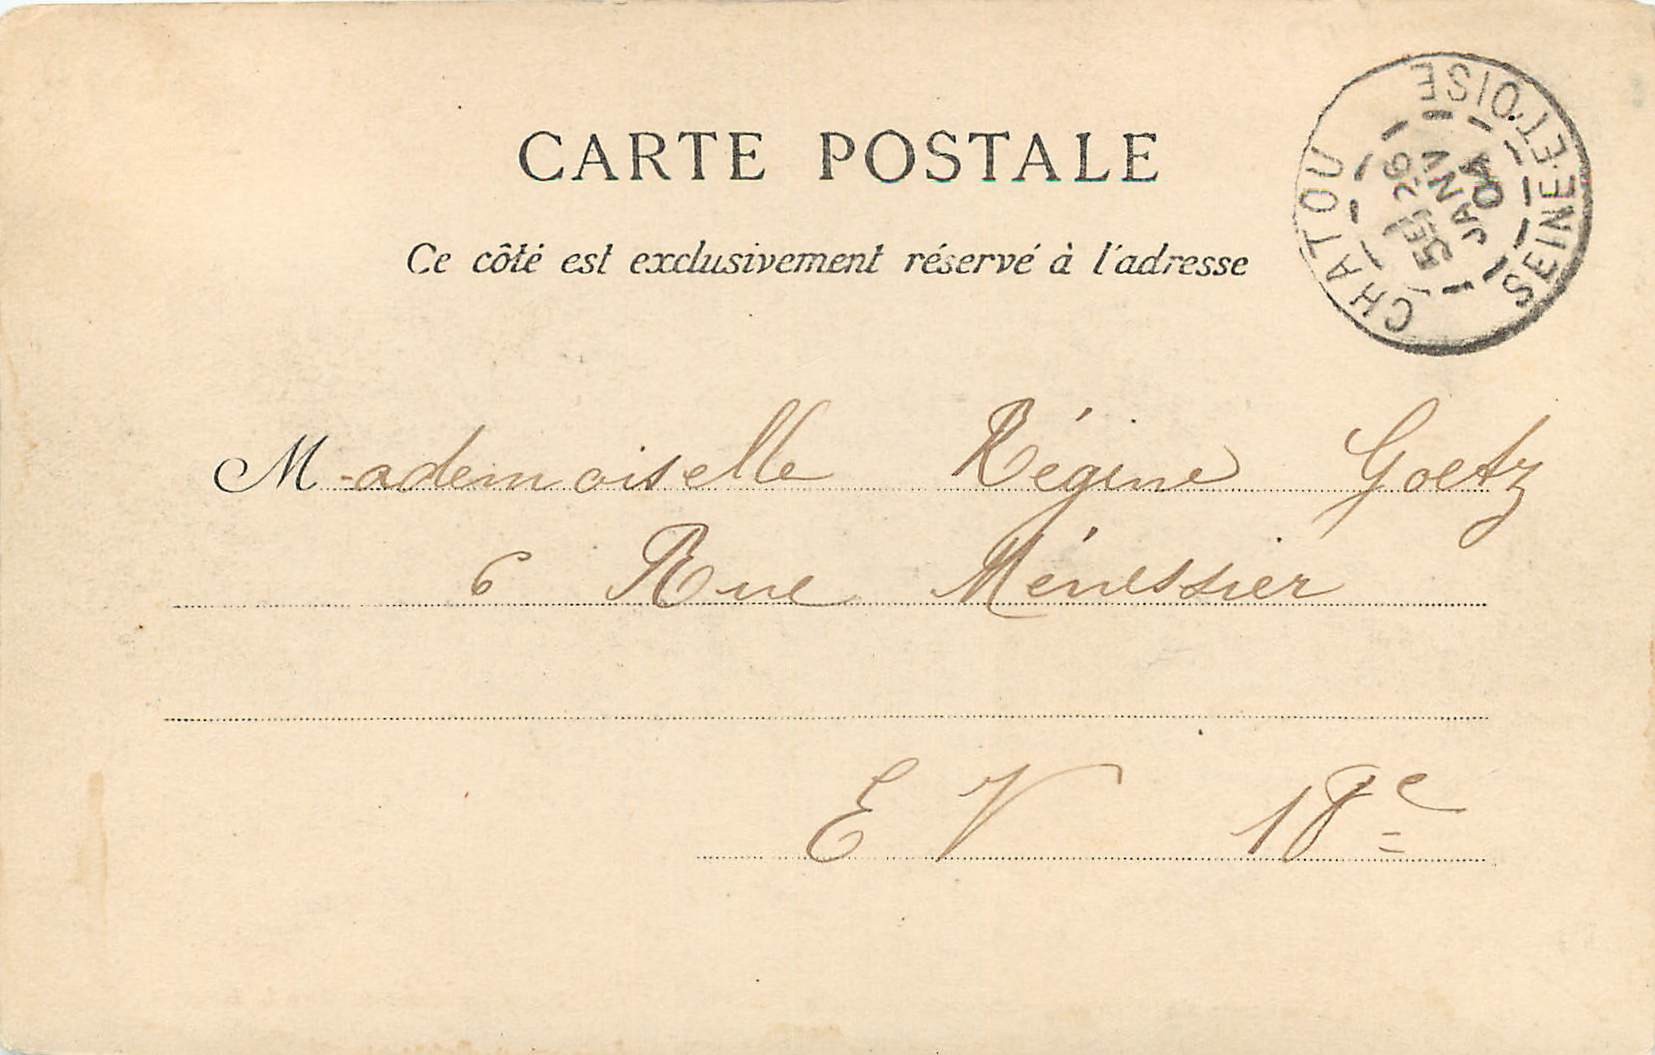 CARTE POSTALE
Ce côté est exclusivement réservé à l'adresse
CHATOU
SEINE-ET-OISE
5E/26
JANV
04
Mademoiselle Régine Goetz
6 Rue Ménessier
E V 18e